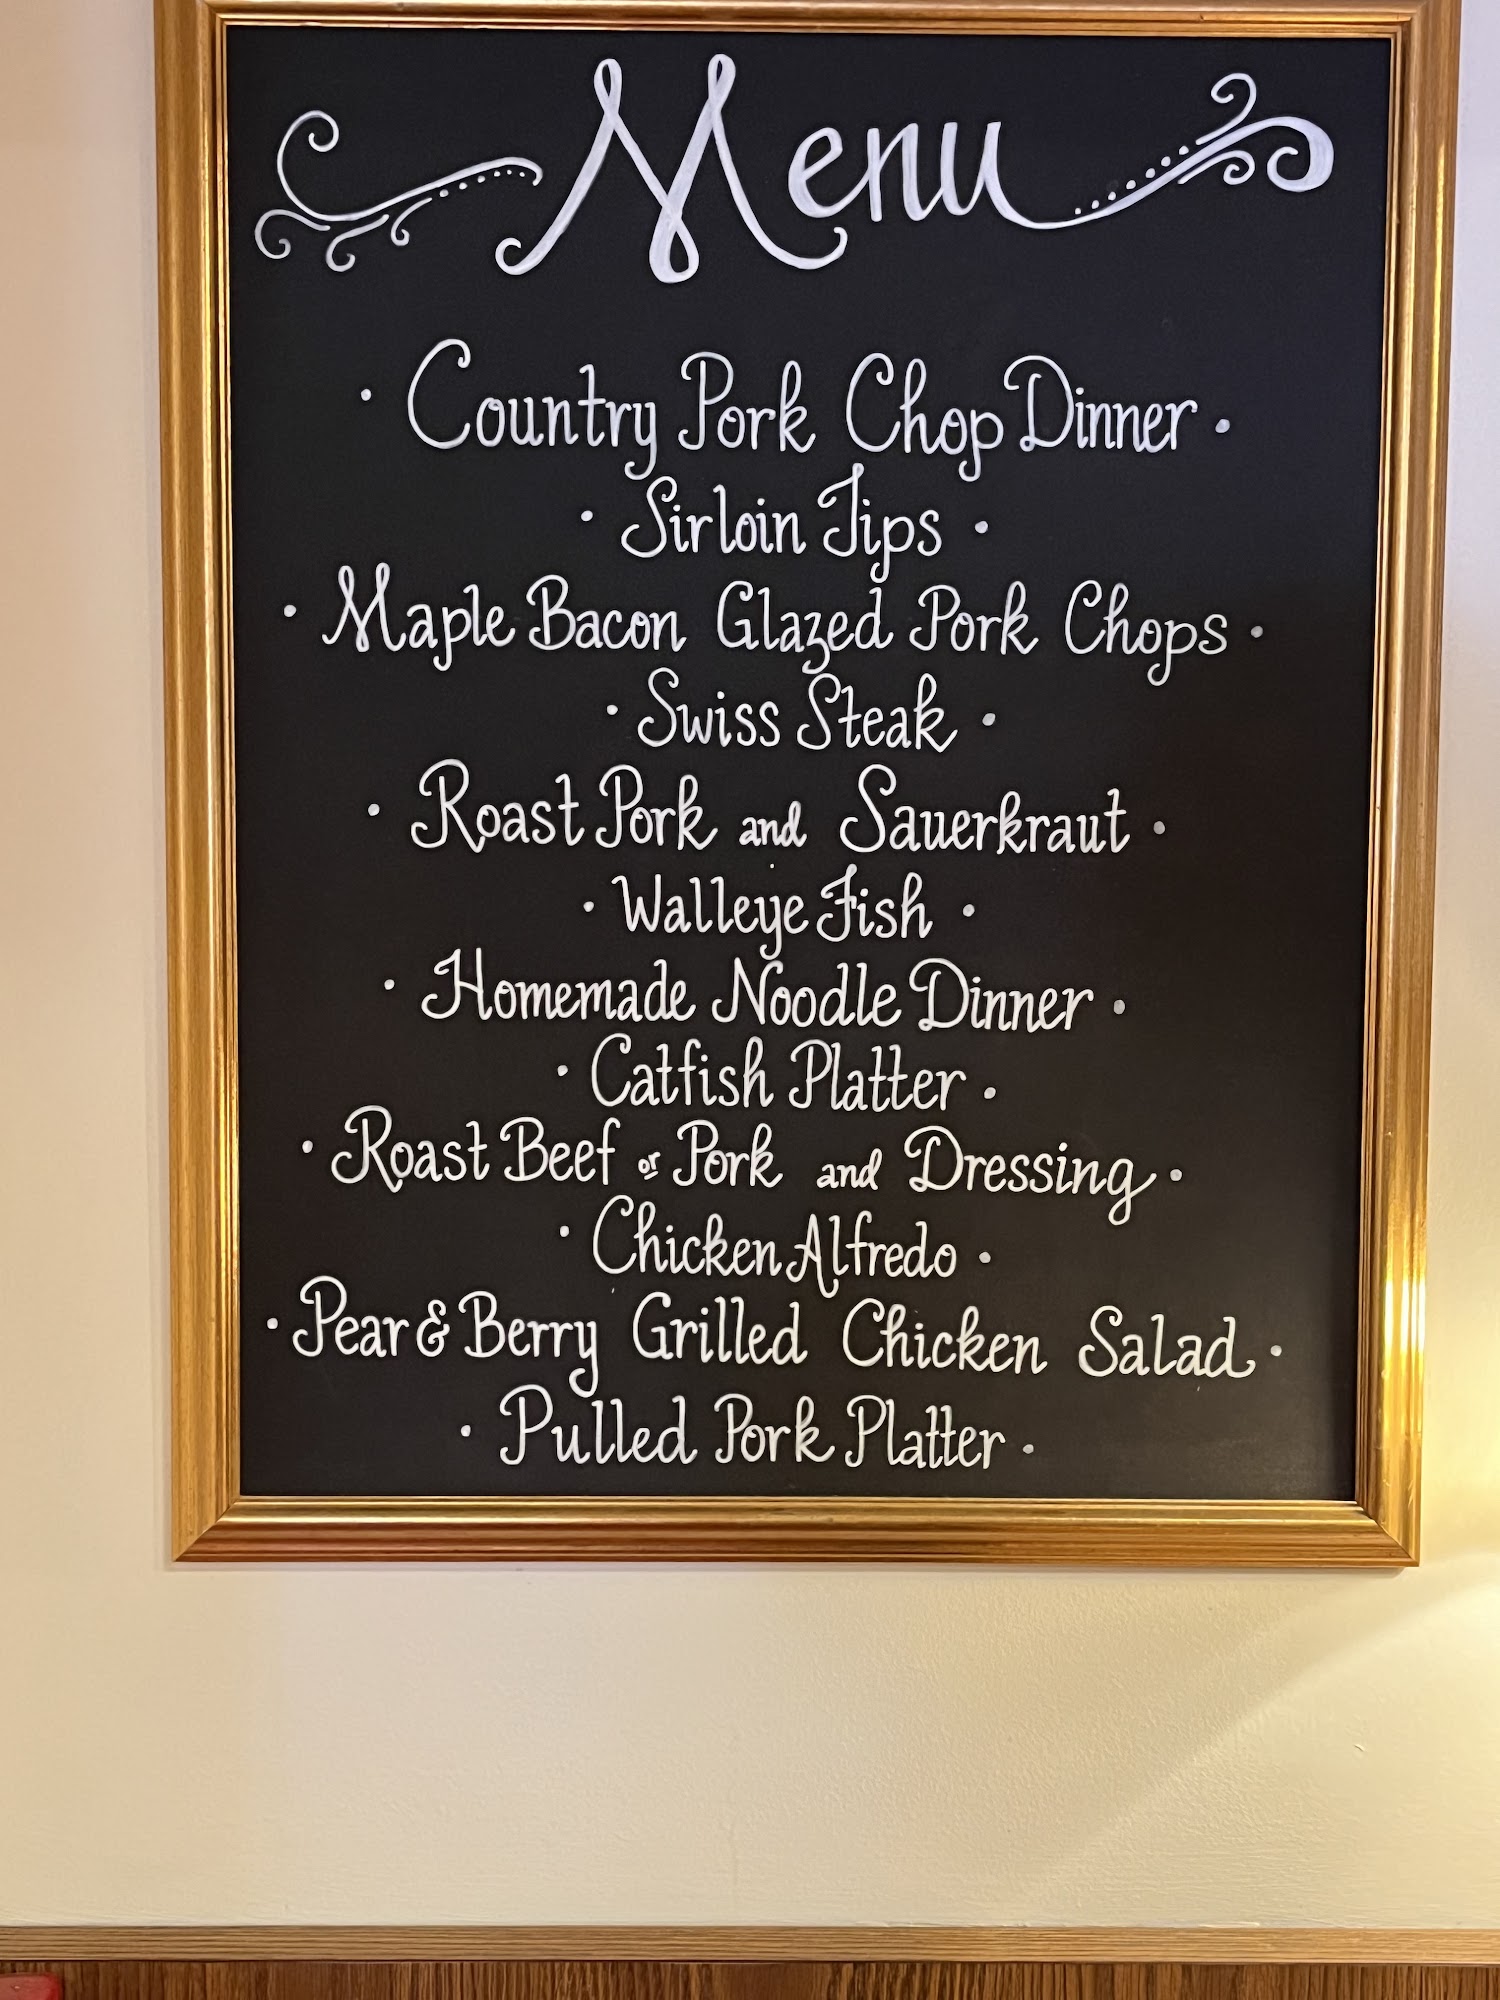 Menu
• Country Pork Chop Dinner •
• Sirloin Tips •
• Maple Bacon Glazed Pork Chops •
• Swiss Steak •
• Roast Pork and Sauerkraut •
• Walleye Fish •
• Homemade Noodle Dinner •
• Catfish Platter •
• Roast Beef or Pork and Dressing •
• Chicken Alfredo •
• Pear & Berry Grilled Chicken Salad •
• Pulled Pork Platter •